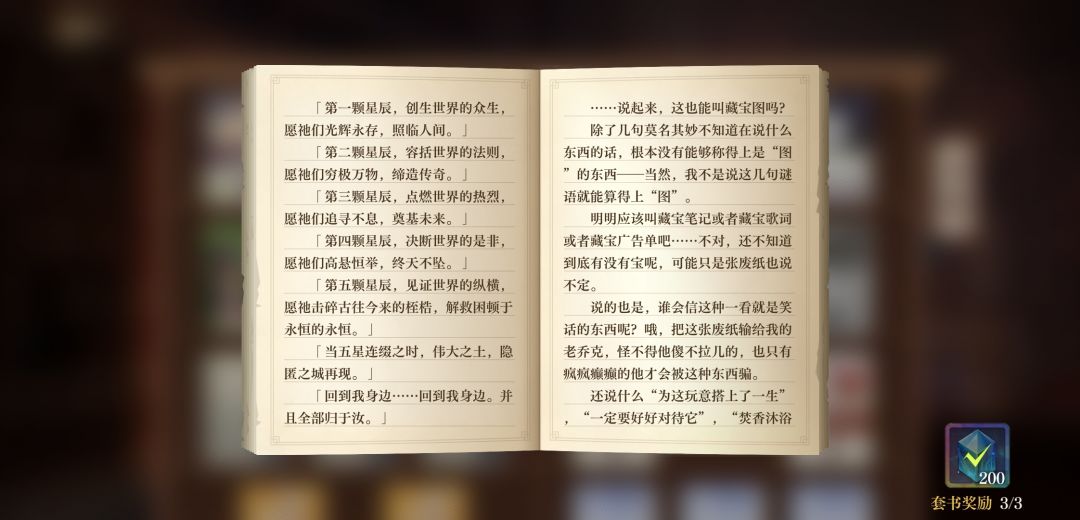 「第一颗星辰，创生世界的众生，
愿祂们光辉永存，照临人间。」
「第二颗星辰，容括世界的法则，
愿祂们穷极万物，缔造传奇。」
「第三颗星辰，点燃世界的热烈，
愿祂们追寻不息，奠基未来。」
「第四颗星辰，决断世界的是非，
愿祂们高悬恒举，终天不坠。」
「第五颗星辰，见证世界的纵横，
愿祂击碎古往今来的桎梏，解救困顿于
永恒的永恒。」
「当五星连缀之时，伟大之土，隐
匿之城再现。」
「回到我身边……回到我身边。并
且全部归于汝。」
……说起来，这也能叫藏宝图吗？
除了几句莫名其妙不知道在说什么
东西的话，根本没有能够称得上是“图
”的东西——当然，我不是说这几句谜
语就能算得上“图”。
明明应该叫藏宝笔记或者藏宝歌词
或者藏宝广告单吧……不对，还不知道
到底有没有宝呢，可能只是张废纸也说
不定。
说的也是，谁会信这种一看就是笑
话的东西呢？哦，把这张废纸输给我的
老乔克，怪不得他傻不拉几的，也只有
疯疯癫癫的他才会被这种东西骗。
还说什么“为这玩意搭上了一生”
，“一定要好好对待它”，“焚香沐浴
200
套书奖励 3/3